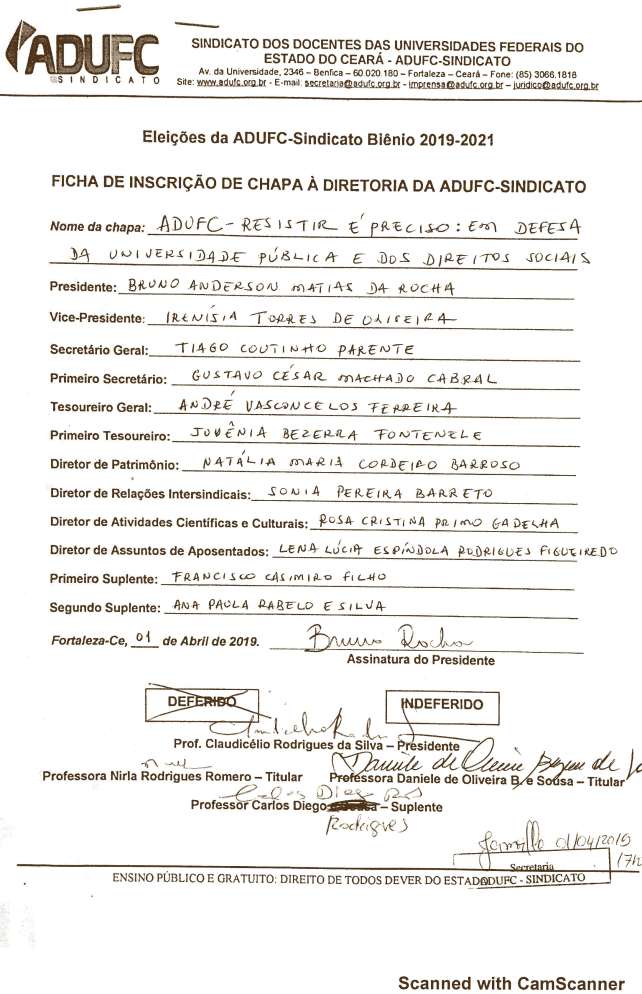 ADUFC
SINDICATO
SINDICATO DOS DOCENTES DAS UNIVERSIDADES FEDERAIS DO
ESTADO DO CEARÁ - ADUFC-SINDICATO
Av. da Universidade, 2346 – Benfica – 60.020.180 – Fortaleza – Ceará – Fone: (85) 3066.1818
Site: www.adufc.org.br - E-mail: secretaria@adufc.org.br - imprensa@adufc.org.br – juridico@adufc.org.br
Eleições da ADUFC-Sindicato Biênio 2019-2021
FICHA DE INSCRIÇÃO DE CHAPA À DIRETORIA DA ADUFC-SINDICATO
Nome da chapa: ADUFC - RESISTIR É PRECISO: EM DEFESA
DA UNIVERSIDADE PÚBLICA E DOS DIREITOS SOCIAIS
Presidente: BRUNO ANDERSON MATIAS DA ROCHA
Vice-Presidente: IRENÍSIA TORRES DE OLIVEIRA
Secretário Geral: TIAGO COUTINHO PARENTE
Primeiro Secretário: GUSTAVO CÉSAR MACHADO CABRAL
Tesoureiro Geral: ANDRÉ VASCONCELOS FERREIRA
Primeiro Tesoureiro: JUVÊNIA BEZERRA FONTENELE
Diretor de Patrimônio: NATÁLIA MARIA CORDEIRO BARROSO
Diretor de Relações Intersindicais: SONIA PEREIRA BARRETO
Diretor de Atividades Científicas e Culturais: ROSA CRISTINA PRIMO GADELHA
Diretor de Assuntos de Aposentados: LENA LÚCIA ESPÍNDOLA RODRIGUES FIGUEIREDO
Primeiro Suplente: FRANCISCO CASIMIRO FILHO
Segundo Suplente: ANA PAULA RABELO E SILVA
Fortaleza-Ce, 01 de Abril de 2019. Bruno Rocha
Assinatura do Presidente
DEFERIDO INDEFERIDO
Prof. Claudicélio Rodrigues da Silva – Presidente
Daniele de
Professora Nirla Rodrigues Romero – Titular Professora Daniele de Oliveira B. e Sousa – Titular
Carlos Diego
Professor Carlos Diego – Suplente
Rodrigues
01/04/2019
Secretaria 17h
ENSINO PÚBLICO E GRATUITO: DIREITO DE TODOS DEVER DO ESTADO ADUFC - SINDICATO
Scanned with CamScanner